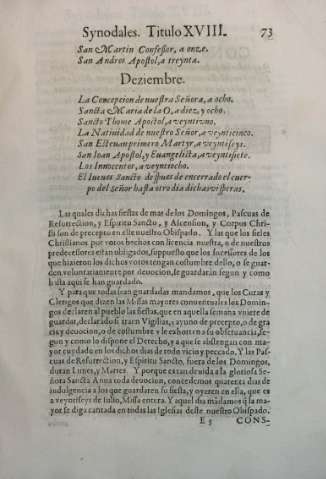 Synodales. Titulo XVIII. 73
San Martin Confessor, a onze.
San Andres Apostol, a treynta.
Deziembre.
La Concepcion de nuestra Señora, a ocho.
Sancta Maria de la O, a diez, y ocho.
Sancto Thome Apostol, a veyntiuno.
La Natiuidad de nuestro Señor, a veynticinco.
San Esteuan primero Martyr, a veyntiseys.
San Ioan Apostol, y Euangelista, a veyntisiete.
Los Innocentes, a veyntiocho.
El Iueues Sancto despues de encerrado el cuer-
po del señor hasta otro dia dichas visperas.
Las quales dichas fiestas de mas de los Domingos, Pascuas de
Resurrection, y Espiritu Sancto, y Ascension, y Corpus Chri-
sti son de precepto en este nuestro Obispado. Y las que los fieles
Christianos por votos hechos con licencia nuestra, o de nuestros
predecessores estan obligados, supuesto que los sucessores de los
que hizieron los dichos votos tengan costumbre dello, o se guar-
den voluntariamente por deuocion, se guardaràn segun y como
hasta aqui se han guardado.
Y para que todas sean guardadas mandamos, que los Curas y
Clerigos que dizen las Missas mayores conuentuales los Domin-
gos declaren al pueblo las fiestas, que en aquella semana vuiere de
guardar, declarado si traen Vigilias, ayuno de precepto, o de gra-
cia, o de costumbre y le exhorten a su obseruancia, se-
gun y como lo dispone el Derecho, y a que se abstengan con ma-
yor cuydado en los dichos dias de todo vicio y peccado. Y las Pas-
cuas de Resurrection, y Espiritu Sancto, fuera de los Domingos,
duran Lunes, y Martes. Y porque es tan deuida a la gloriosa Se-
ñora Sancta Anna toda deuocion, concedemos quarenta dias de
indulgencia a los que guardaren su fiesta, y oyeren en ella, que es
a veyntiseys de Iulio, Missa entera. Y aquel dia mãdamos q̃ la ma-
yor se diga cantada en todas las Iglesias deste nuestro Obispado.
E 5 CONS-